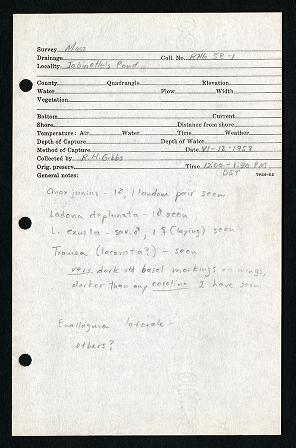 Survey Mass
Drainage Coll. No. RHG 58-1
Locality Jabinette's Pond
County Quadrangle Elevation
Water Flow Width
Vegetation
Bottom Current
Shore Distance from shore
Temperature: Air Water Time Weather
Depth of Capture Depth of Water
Method of Capture Date VI-12-1958
Collected by R.H. Gibbs
Orig. preserv. Time 12:00-1:30 P.M.
General notes: DST
Anax junius - 1♂, 1 tandem pair seen
Ladona deplanata - 1♂ seen
L. exusta - sev. ♂, 1 ♀ (laying) seen
Tramea (lacerata?) - seen
very dark red basal markings on wings,
darker than any carolina I have seen.
Enallagma laterale -
others?